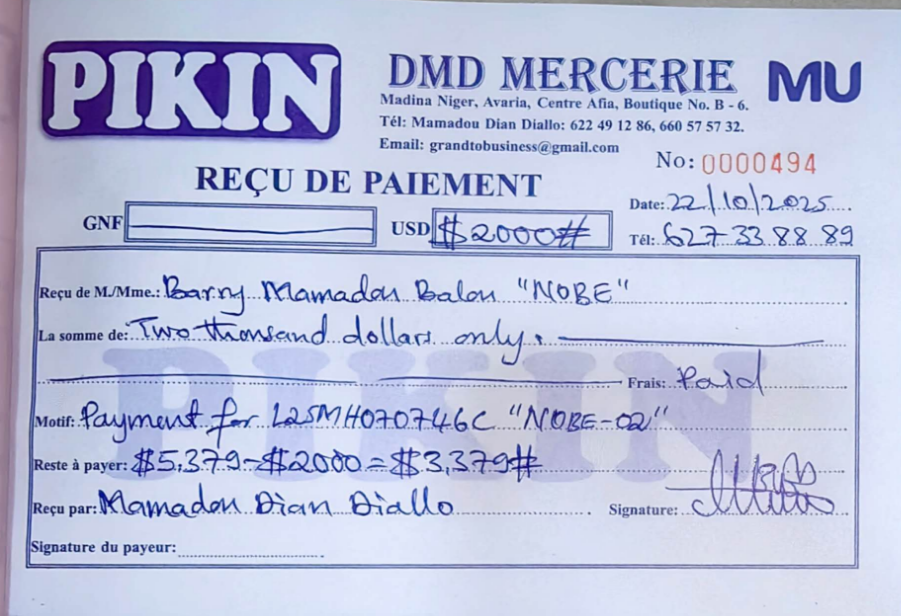 PIKIN
DMD MERCERIE MU
Madina Niger, Avaria, Centre Afia, Boutique No. B - 6.
Tél: Mamadou Dian Diallo: 622 49 12 86, 660 57 57 32.
Email: grandtobusiness@gmail.com
No: 0000494
REÇU DE PAIEMENT
Date: 22/10/2025
GNF USD $2000#
Tél: 627 33 88 89
Reçu de M./Mme.: Barry Mamadou Balou "NOBE"
La somme de: Two thousand dollars only.
Frais: Paid
PIKIN
Motif: Payment for L25MH070746C "NOBE-02"
Reste à payer: $5,379-$2000=$3,379#
Reçu par: Mamadou Dian Diallo Signature:
Signature du payeur: